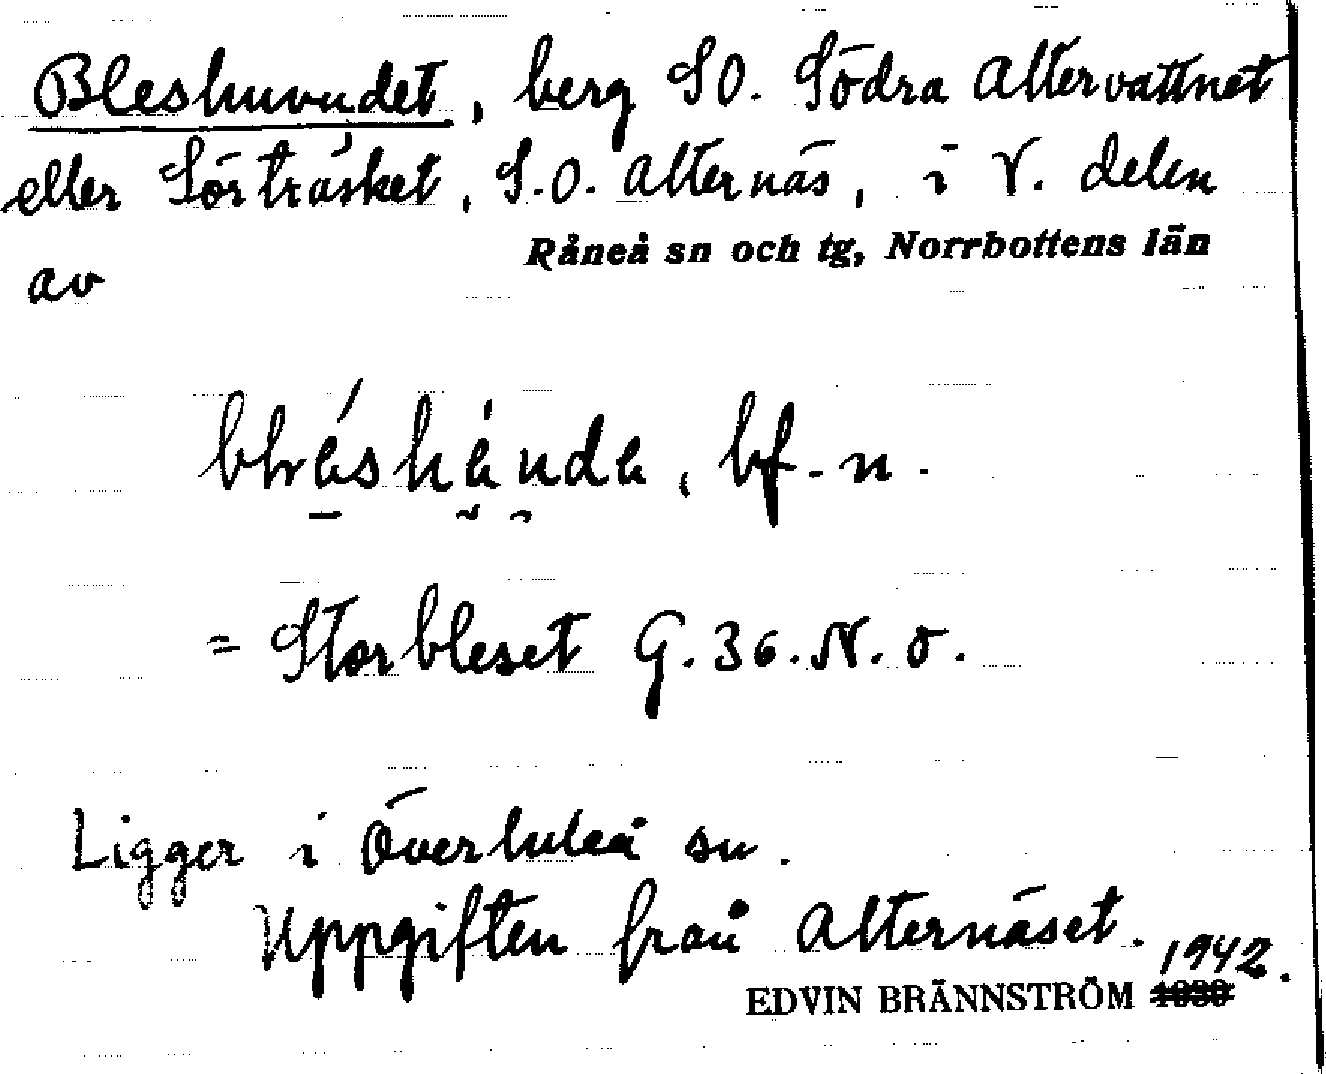 Bleshuvudet, berg SO. Södra Altervattnet
eller Sörträsket, S.O. Alternäs, i V. delen
av Råneå sn och tg, Norrbottens län
bf. n.
= Storbleset G. 36. N. o.
Ligger i Överluleå sn.
Uppgiften från Alternäset.
EDVIN BRÄNNSTRÖM 1942.